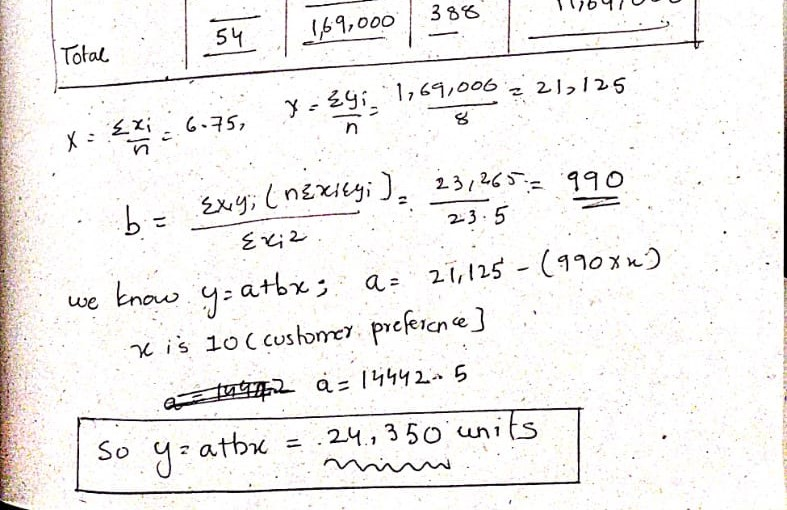 Total 54 1,69,000 388
x = Σxi/n = 6.75, y = Σyi/n = 1,69,000/8 = 21,125
b = Σxiyi (nΣxiεyi] / Σxi2 = 23,265/23.5 = 990
we know y=a+bx; a= 21,125 - (990xx)
x is 10 (customer preference]
a= 14442.5
So y=a+bx = 24,350 units